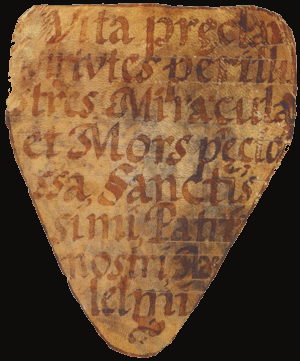 Vita preclar
virtutes perillu
tres Miracula
et Mors precio
ssa, Sanctis
simi Patris
nostri
lelmi